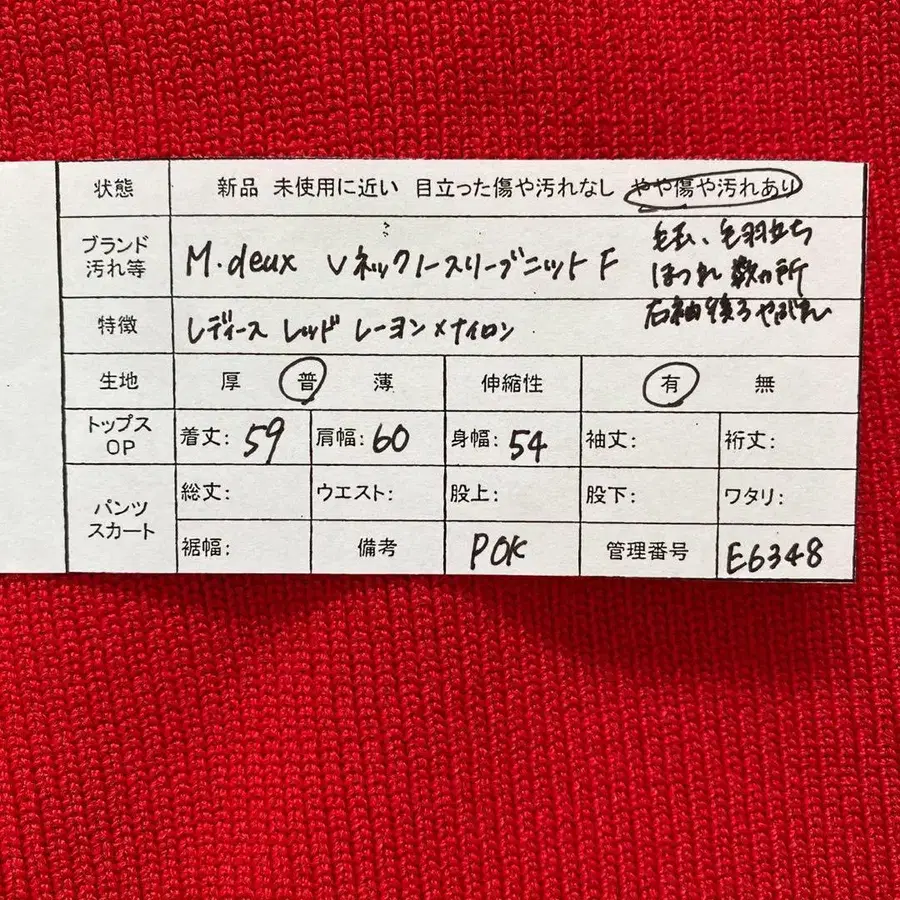 状態 新品 未使用に近い 目立った傷や汚れなし やや傷や汚れあり
ブランド
汚れ等
M.deux Vネックノースリーブニット F
毛玉、毛羽立ち
ほつれ 数カ所
右袖後ろ やぶれ
特徴 レディース レッド レーヨン×ナイロン
生地 厚 普 薄 伸縮性 有 無
トップス
OP
着丈: 59 肩幅: 60 身幅: 54 袖丈: 裄丈:
パンツ
スカート
総丈: ウエスト: 股上: 股下: ワタリ:
裾幅: 備考 POK 管理番号 E6348